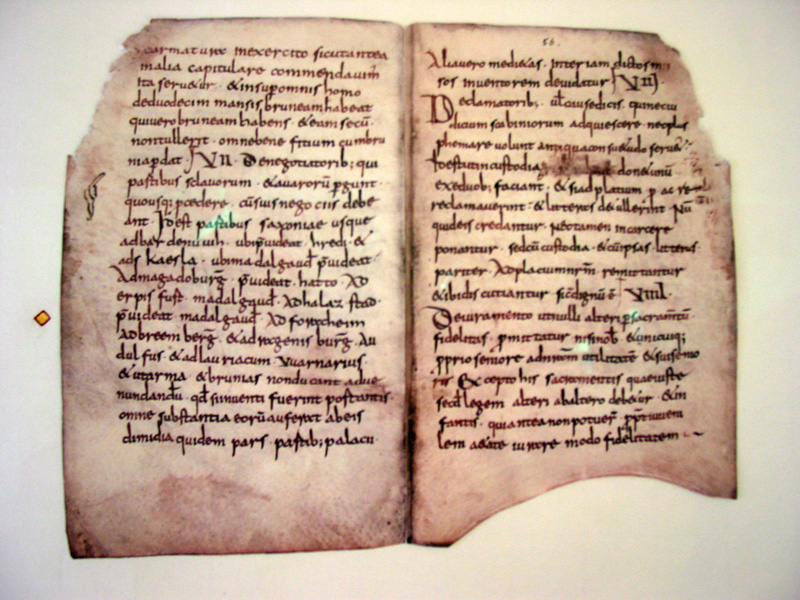 carmaturae inexercito sicutantea
inalia capitulare commendavim
ita servetur & insuper omnis homo
deduodecim mansis bruneam habeat
qui vero bruneam habens & eam secū
non tullerit omne beneficium cum bru
nia pdat VII De negotiatorib; qui
partibus sclavorum & avarorū pgunt
quousq; pcedere cū suis negociis debe
ant Id est partibus saxoniae usque
ad bardenuuih ubi pvideat hredi &
ad skaesla ubi madalgaud pvideat
Ad magadoburg pvideat hatto Ad
erpisfurt madalgaud Ad halazstad
pvideat madalgaud Ad foracheim
Ad breemberg & ad ragenisburg Au
dulfus & ad lauriacum Vuarnarius
& ut arma & brunias non ducant ad ve
nundandū qd si inventi fuerint portantes
omne substantia eorū auferat ab eis
dimidia quidem pars partib; palacii
56
Alia vero medietas inter iam dictos m
sos inventorem dividatur VIII
De clamatorib; vel causedicis qui nec iu
dicium scabiniorum adquiescere nec blas
phemare volunt antiqua consuetudo servet
Id est ut in custodia donec unū
ex duob; faciant & si ad palatium p ac re
reclamaverint & litteras detullerint
quid eis credantur nec tamen in carcere
ponantur sed cū custodia & cū ipsas litteris
pariter Ad palacium nrm remittantur
& ibi discutiantur sic dignū ē VIIII
De iuramento ut nulli alteri p sacramtū
fidelitas pmittatur nisi nob & unicuiq;
pprio seniore ad nram utilitatē & sui senio
ris Excepto his sacramentis quae iuste
secd legem alteri ab altero debetur & in
fantis qui antea non potuer ppt iuveni
lem aetate iurare modo fidelitatem